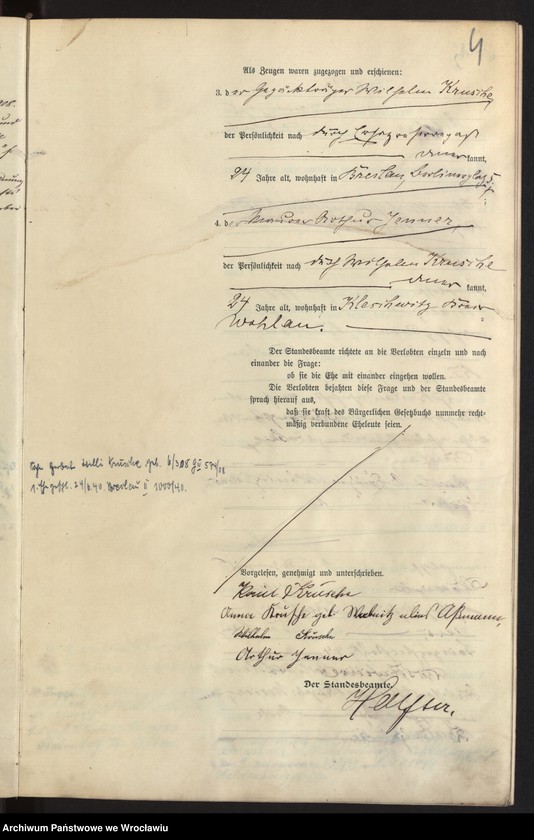 4
Als Zeugen waren zugezogen und erschienen:
3. der Gepäckträger Wilhelm Krusche,
der Persönlichkeit nach durch
kannt,
24 Jahre alt, wohnhaft in Breslau,
4. der Maurer Arthur Jenner,
der Persönlichkeit nach durch Wilhelm Krusche
kannt,
24 Jahre alt, wohnhaft in Kleschwitz Kreis
Wohlau.
Der Standesbeamte richtete an die Verlobten einzeln und nach
einander die Frage:
ob sie die Ehe mit einander eingehen wollen.
Die Verlobten bejahten diese Frage und der Standesbeamte
sprach hierauf aus,
daß sie kraft des Bürgerlichen Gesetzbuchs nunmehr recht-
mäßig verbundene Eheleute seien.
Willi Krusche geb. 6/3 08
1. 24/2.40. Breslau II 1000/40.
Vorgelesen, genehmigt und unterschrieben.
Paul Krusche
Anna Krusche geb. alias Aßmann,
Wilhelm Krusche
Arthur Jenner
Der Standesbeamte
Archiwum Państwowe we Wrocławiu